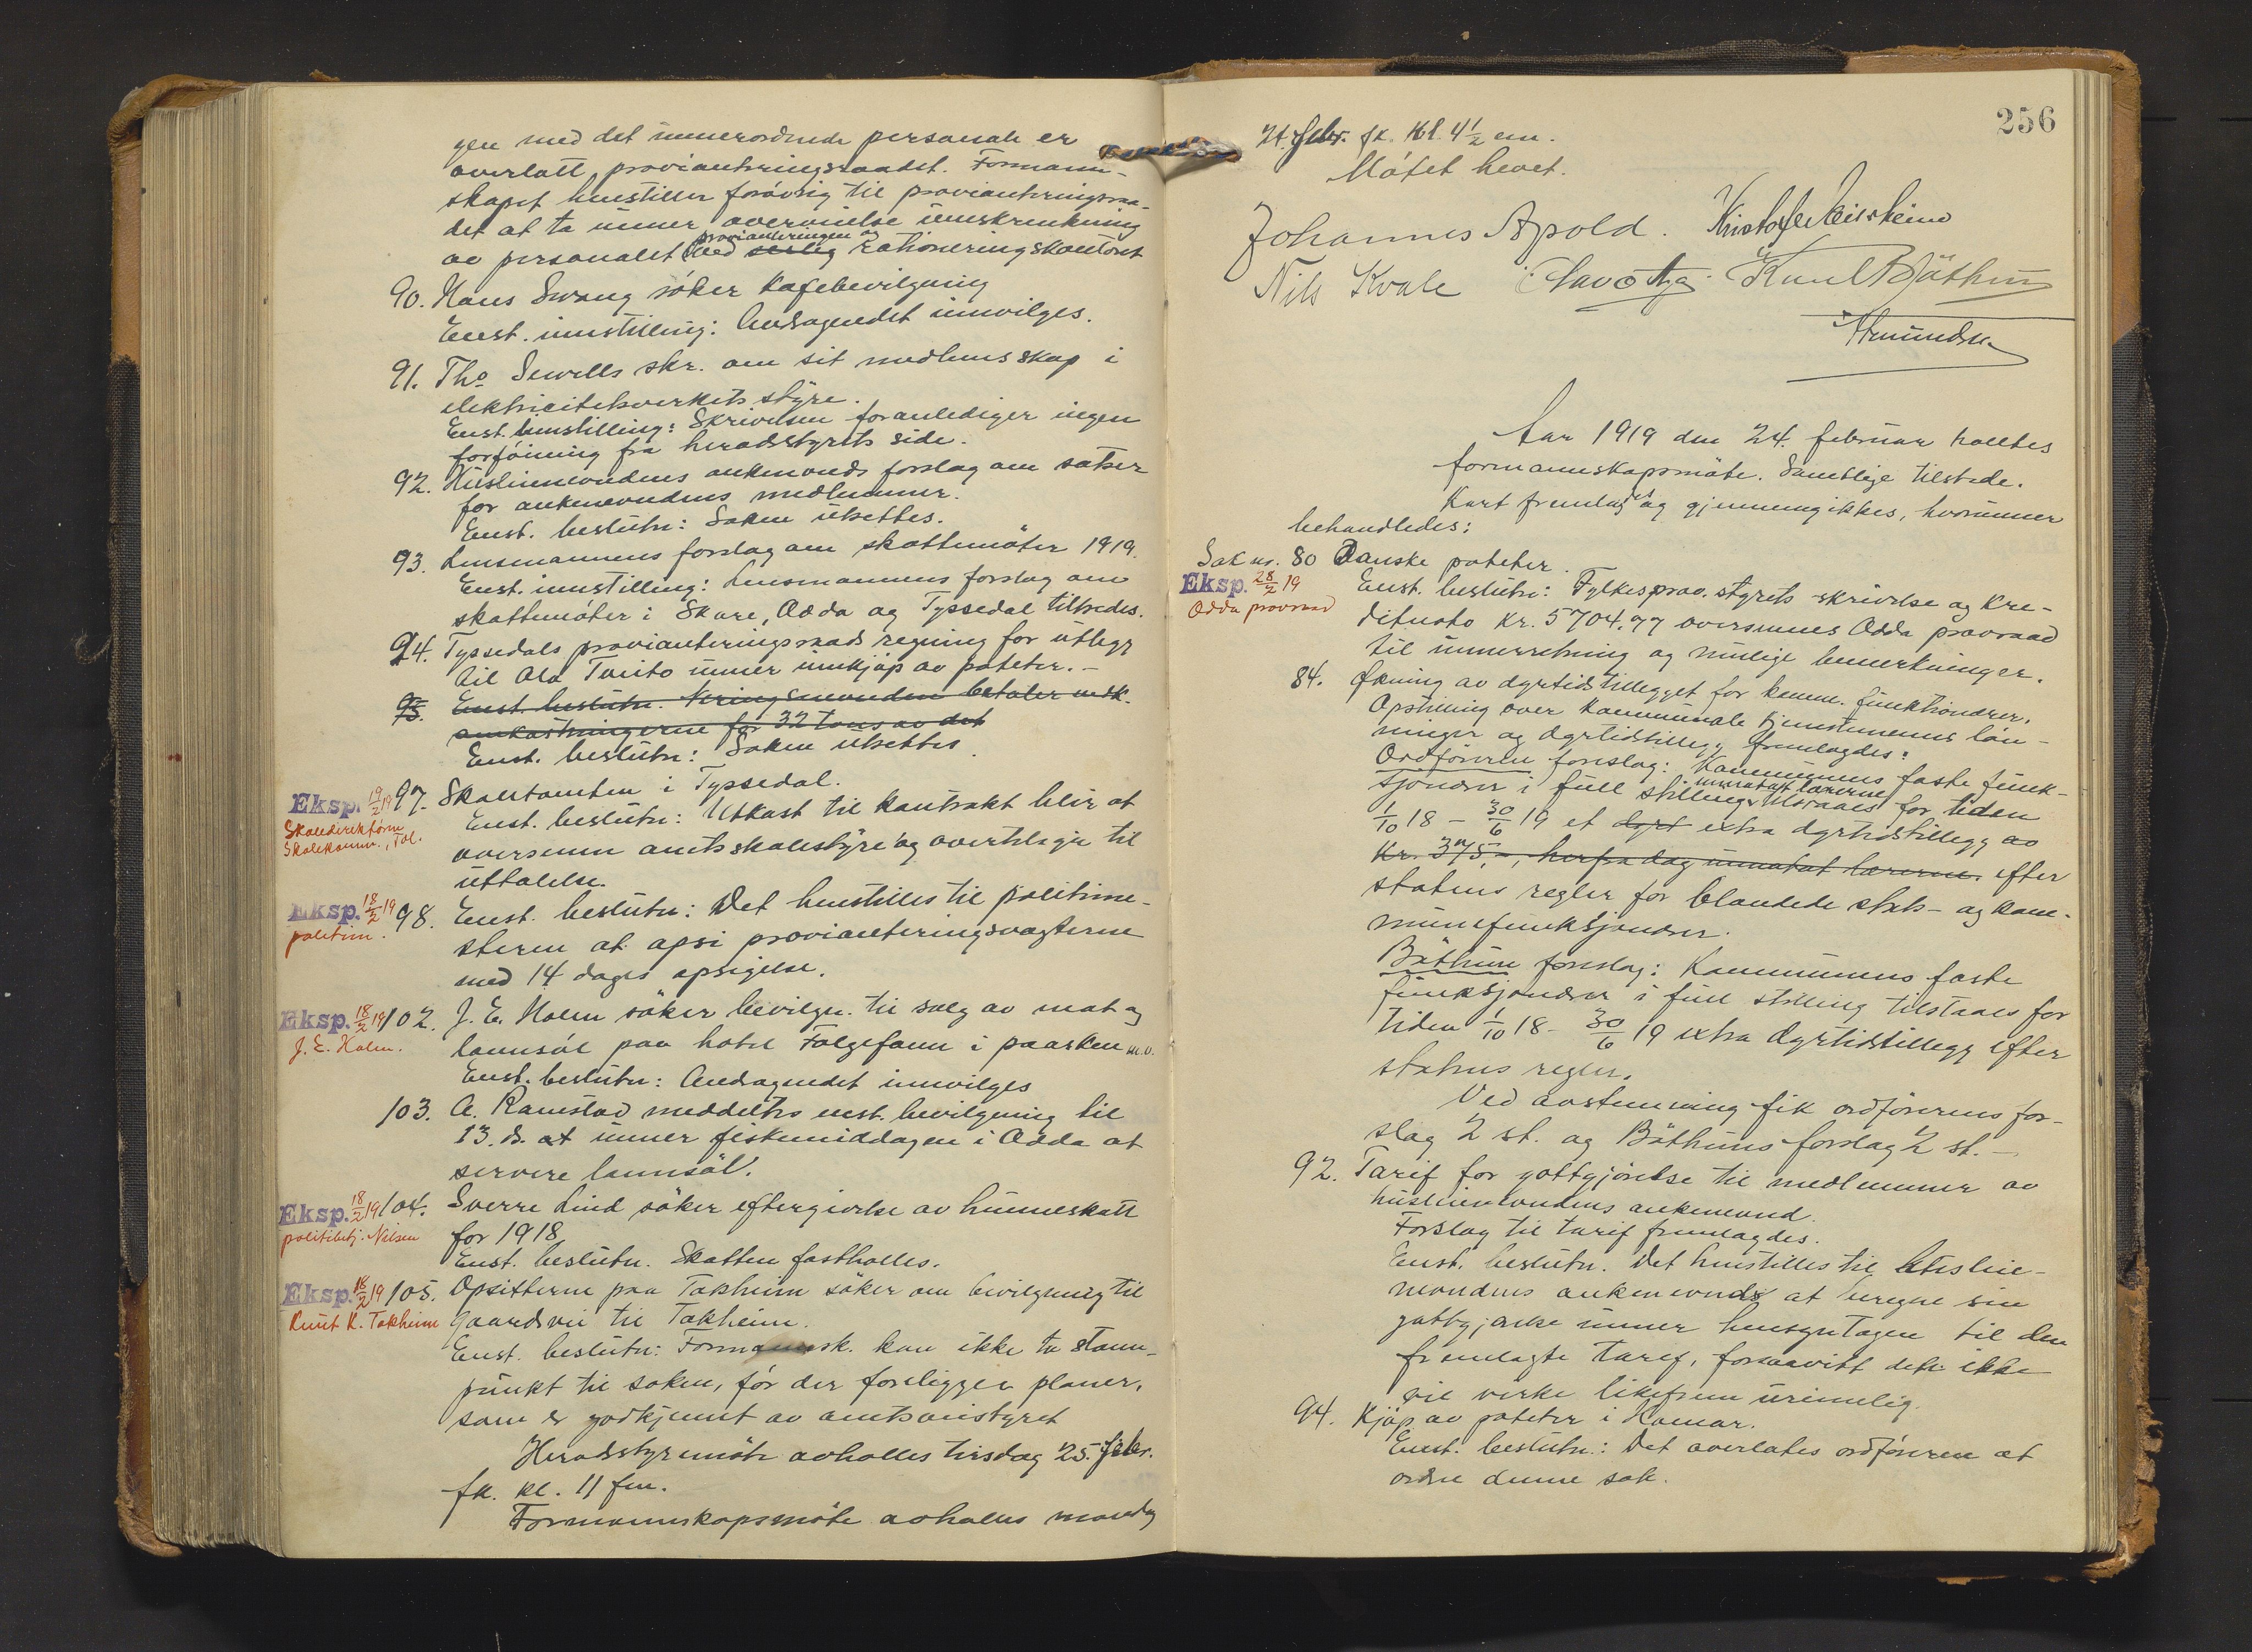 gen med det unnerordnede personale er
overlatt provianteringsraadet. Formann-
skapet henstiller forövrig til provianteringsraa-
det at ta unner overveielse innskrenkning
provianteringen og
av personalet ved særlig rationeringskontoret
90. Hans Svang söker kafebevilgning
Enst. innstilling: Andragendet innvilges.
91. Tho Sewells skr. om sit medlemsskap i
elektricitetsverkets styre.
Enst. innstilling: Skrivelsen foranlediger ingen
forföining fra heradsstyrets side.
92. Husleienevndens ankenevnds forslag om satser
for ankenevndens medlemmer.
Enst. beslutn: Saken utsettes.
93. Lensmannens forslag om skattemöter 1919.
Enst. innstilling: Lensmannens forslag om
skattemöter i Skare, Odda og Tyssedal tiltredes.
94. Tyssedals provianteringsraads regning for utlegg
til Ola Tveito unner innkjöp av poteter. -
95. Enst. beslutn. Kringsnevnden betaler vedk.
omkostningerne for 32 tons av det
Enst. beslutn: Saken utsettes
Eksp. 19/2 19 97. Skoletomten i Tyssedal.
Skoledirektören
Skolekomm., Tol.
Enst. beslutn: Utkast til kontrakt blir at
oversenne amtsskolestyre og overtilsyn til
uttalelse.
Eksp. 18/2 19 98. Enst. beslutn: Det henstilles til politime-
politim.
steren at opsi provianteringsvagterne
med 14 dages opsigelse.
Eksp. 18/2 19 102. J. E. Holm söker bevilgn. til salg av mat og
J. E. Holm.
lannsöl paa hotel Folgefonn i paasken m.v.
Enst. beslutn: Andragendet innvilges
103. A. Ramstad meddeltes enst. bevilgning til
13. ds. at unner fiskemiddagen i Odda at
servere lannsöl.
Eksp. 18/2 19 104. Sverre Lind söker eftergivelse av hunneskatt
politibetj. Nilsen
for 1918
Enst. beslutn. Skatten fastholles.
Eksp. 18/2 19 105. Opsitterne paa Tokheim söker om bevilgning til
Knut K. Tokheim
Gaardsvei til Tokheim.
Enst. beslutn: Formannsk. kan ikke ta stann-
punkt til saken, för der foreligger planer,
som er godkjennt av amtsveistyret
Heradsstyremöte avholles tirsdag 25. febr.
fk. kl. 11 fm.
Formannskapsmöte avholles mandag
256
24. febr. fk. kl. 4 1/2 em.
Mötet hevet.
Johannes Apold. Kristofer Meisheim
Nils Kvale Olav Aga. Knut Böthun
Amundsen
Aar 1919 den 24. februar holltes
formannskapsmöte. Samtlige tilstede.
Kart fremlagdes og gjennemgikkes, hvorunner
behandledes:
Sak nr. 80 Danske poteter.
Eksp. 28/2 19
Odda provraad
Enst. beslutn: Fylkesprov. styrets skrivelse og kre-
ditnota kr. 5704.97 oversennes Odda provraad
til unnerretning og mulige bemerkninger.
84. Økning av dyrtidstillegget for komm. funktionærer.
Opstilling over kommunale tjenestemenns lön-
ninger og dyrtidstillegg fremlagdes:
Ordförerens forslag: Kommunens faste funk-
unntat lærerne
sjonærer i full stilling tilstaaes for tiden
1/10 18 - 30/6 19 et dyrt extra dyrtidstillegg av
kr. 375,-, herfra dog unntat lærerne. efter
statens regler for blandede stats- og kom-
munefunksjonærer.
Böthun forslag: Kommunens faste
funksjonærer i full stilling tilstaaes for
tiden 1/10 18 - 30/6 19 extra dyrtidstillegg efter
statens regler.
Ved avstemning fik ordförerens for-
slag 2 st. og Böthuns forslag 2 st. -
92. Tarif for gottgjörelse til medlemmer av
husleienevndens ankenevnd.
Forslag til tarif fremlagdes.
Enst. beslutn. Det henstilles til husleie-
nevndens ankenevnds at beregne sin
gottgjörelse unner hensyntagen til den
fremlagte tarif, forsaavitt dette ikke
vil virke likefrem urimelig.
94. Kjöp av poteter i Hamar.
Enst. beslutn.: Det overlates ordföreren at
ordne denne sak.